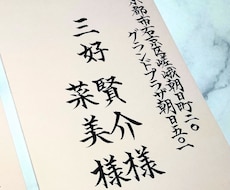 京都市右京区嵯峨朝日町二〇
グランドプラザ朝日五〇一
三好 賢介様
菜美様